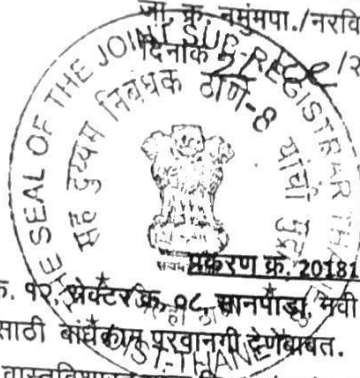 जा. क्र. नमुंमपा./नरवि
दिनांक
THE SEAL OF THE JOINT SUB-REGISTRAR THANE
सह दुय्यम निबंधक ठाणे-8 यांची मुद्रा
प्रकरण क्र. 20181
क्र. १२, सेक्टर क्र. ०८, सानपाडा, नवी
साठी बांधकाम परवानगी देणेबाबत.
DIST-THANE